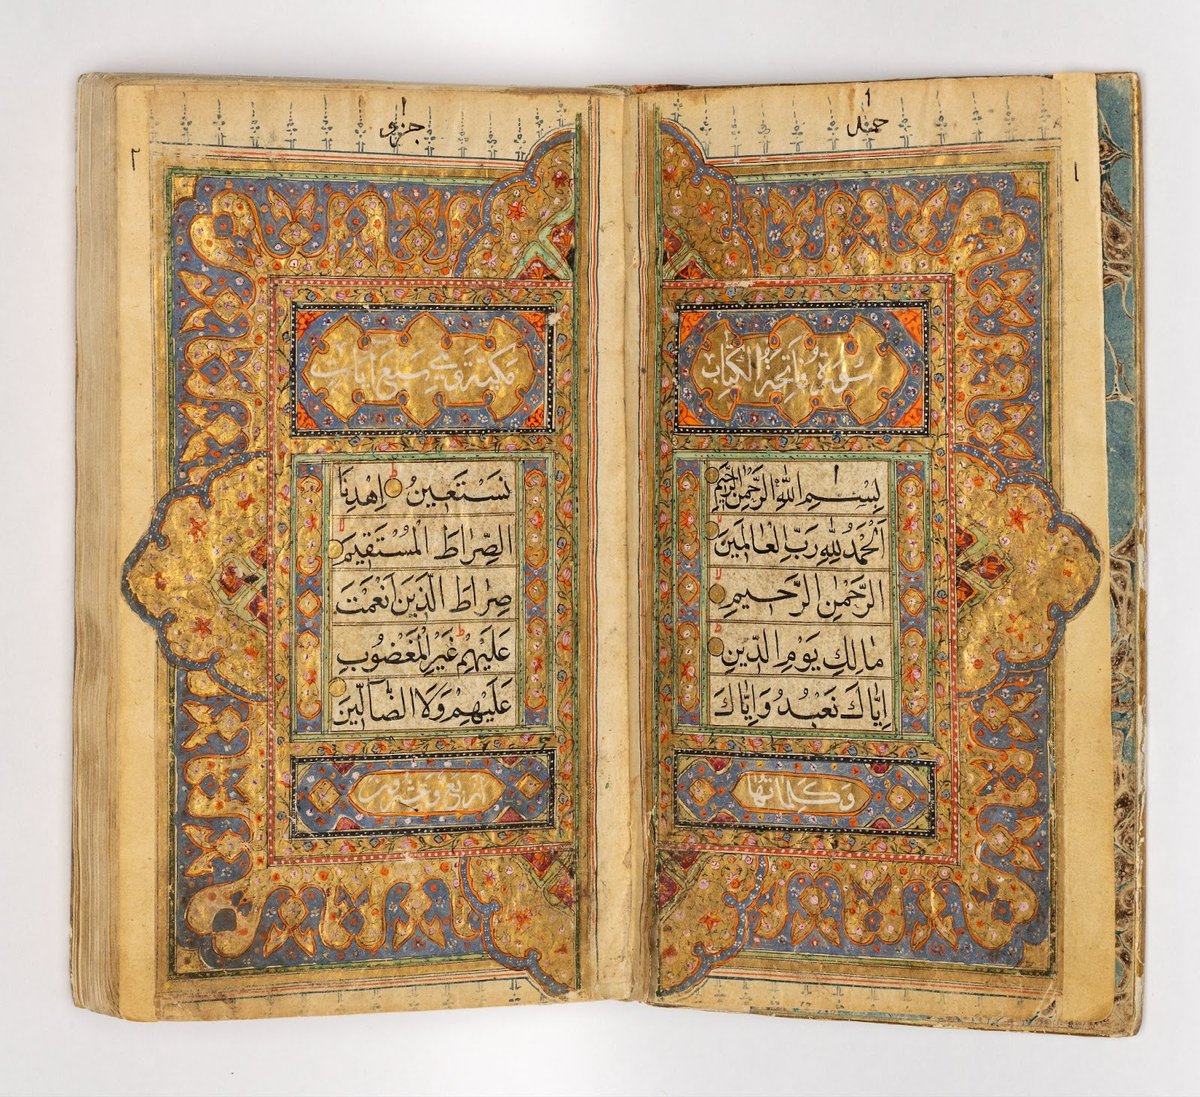 ١
حمد
١
سورة فاتحة الكتاب
بِسْمِ اللهِ الرَّحْمٰنِ الرَّحِيْمِ
اَلْحَمْدُ لِلّٰهِ رَبِّ الْعَالَمِيْنَ
الرَّحْمٰنِ الرَّحِيْمِ
مَالِكِ يَوْمِ الدِّيْنِ
اِيَّاكَ نَعْبُدُ وَاِيَّاكَ
وكلماتها
جزو
٢
مكية وهي سبع آيات
نَسْتَعِيْنُ اِهْدِنَا
الصِّرَاطَ الْمُسْتَقِيْمَ
صِرَاطَ الَّذِيْنَ اَنْعَمْتَ
عَلَيْهِمْ غَيْرِ الْمَغْضُوْبِ
عَلَيْهِمْ وَلَا الضَّآلِّيْنَ